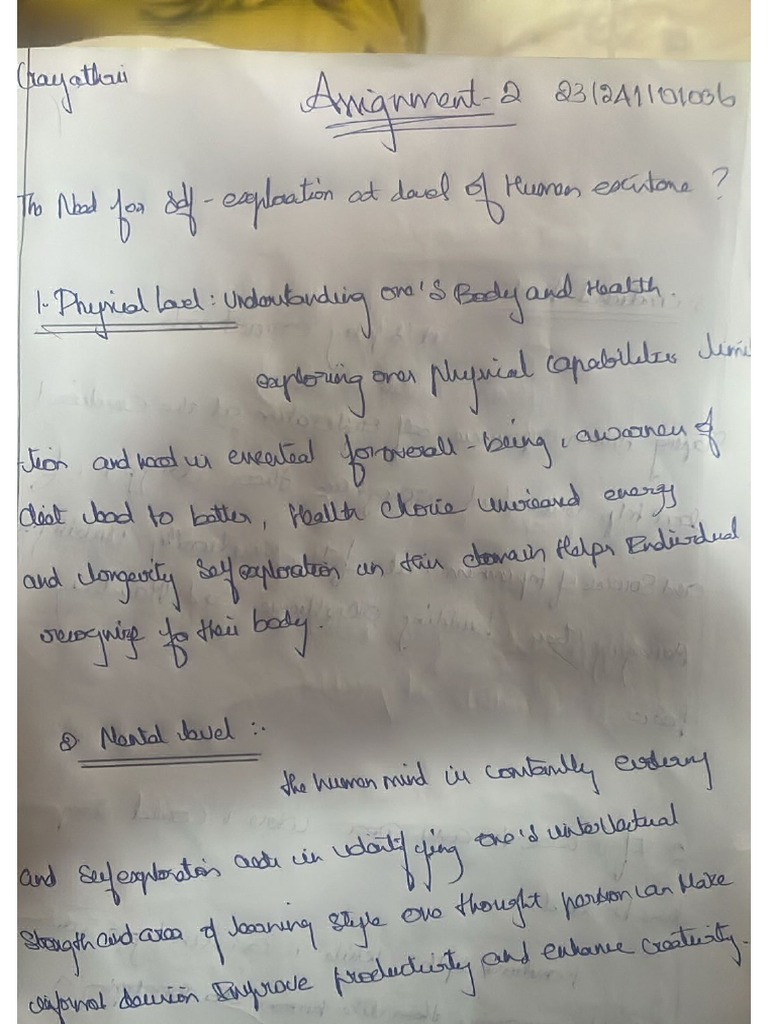 Gayathri Assignment-2
The Need for Self-exploration at level of Human existence?
1. Physical level: Understanding one's Body and Health.
exploring ones physical capabilities limi
tion and need is for overall-being, awarness of
diet lead to better, Health choice energy
and longevity Self exploration in this domain Helps Individual
recognize to their body.
2) Mental level :-
the human mind is constantly
and Self exploration in identifying one's intellectual
Strength and area of learning style one thought can Make
Improve productivity and enhance creativity.